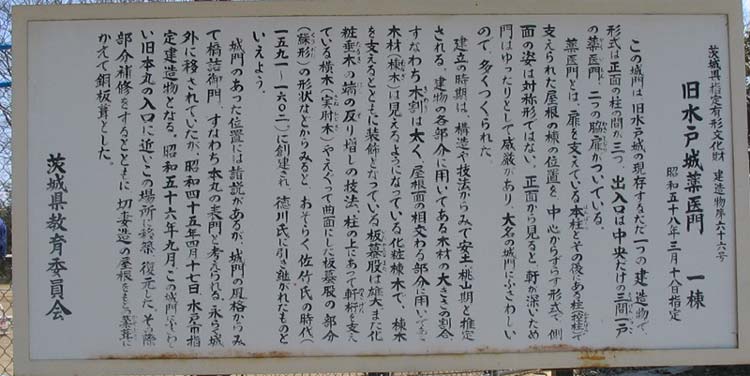 茨城県指定有形文化財 建造物第六十六号
旧水戸城薬医門 一棟
昭和五十八年三月十八日指定
この城門は、旧水戸城の現存するただ一つの建造物で、
形式は正面の柱の間が三つ、出入口は中央だけの三間一戸
の薬医門、二つの脇扉がついている。
薬医門とは、扉を支えている本柱とその後にある柱(控柱)で
支えられた屋根の棟の位置を、中心からずらす形式で、側
面の姿は対称形ではない。正面から見ると軒が深いため
門はゆったりとして威厳があり、大名の城門にふさわしい
ので、多くつくられた。
建立の時期は、構造や技法からみて安土桃山期と推定
される。建物の各部分に用いてある木材の大きさの割合
すなわち木割は太く、屋根面の相交わる部分に用いている
木材(棟木)は見えるようになっている化粧棟木で、棟木
を支えるとともに装飾となっている板蟇股は雄大また化
粧垂木の端の反り増しの技法、柱の上にあって軒桁を支え
ている横木(実肘木)やえぐって曲面にした板蟇股の部分
(蘇形)の形状などからみると、おそらく佐竹氏の時代(
一五九一〜一六〇二)に創建され、徳川氏に引き継がれたものと
いえよう。
城門のあった位置には諸説があるが、城門の風格からみ
て橋詰御門、すなわち本丸の表門と考えられる。永らく城
外に移されていたが、昭和四十五年四月十七日、水戸市指
定建造物となる。昭和五十六年九月、この城門にふさわし
い旧本丸の入口に近いこの場所に移築・復元した。その際
部分補修をするとともに切妻造の屋根をもつ茅葺に
かえて銅板葺とした。
茨城県教育委員会